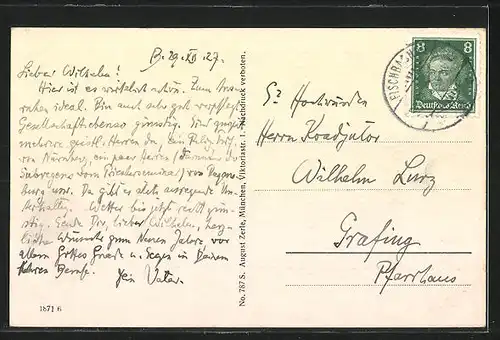 B. 29. XII. 27.
Lieber Wilhelm!
Hier ist es wirklich schön. Zum Ausruhen
ideal. Bin auch sehr gut verpflegt
Gesellschaft ebenso günstig. Sind
mehrere geistl. Herren da, ein
von Nürnberg, ein paar Herren
u. Da gibt es stets anregende Unterhaltung.
Wetter bis jetzt recht günstig.
Sende Dir, lieber Wilhelm, herzliche
Wünsche zum Neuen Jahre, vor
allem Gottes Gnade u. Segen in Deinem
Berufe.
Dein Vater.
1671 6
No. 787 S. August Zerle, München, Viktoriastr. 1. Nachdruck verboten.
8 8
Deutsches Reich
FISCHBACH
Sr Hochwürden
Herrn Koadjutor
Wilhelm Lurz
Grafing
Pfarrhaus